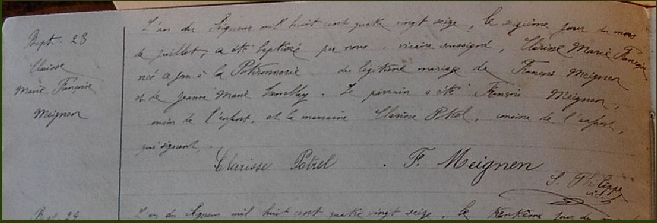 Bapt. 23
Clarisse
Marie Françoise
Meignen
L'an du Seigneur mil huit cent quatre vingt seize, le seizième jour du mois
de juillet, a été baptisée par nous vicaire soussigné, Clarisse Marie Françoise
née ce jour à la du légitime mariage de François Meignen
et de Jeanne Marie. Le parrain a été François Meignen,
cousin de l'enfant, et la marraine Clarisse Patrel, cousine de l'enfant,
qui signent.
Clarisse Patrel . F. Meignen
Bapt. 24
L'an du Seigneur mil huit cent quatre vingt seize, le jour du